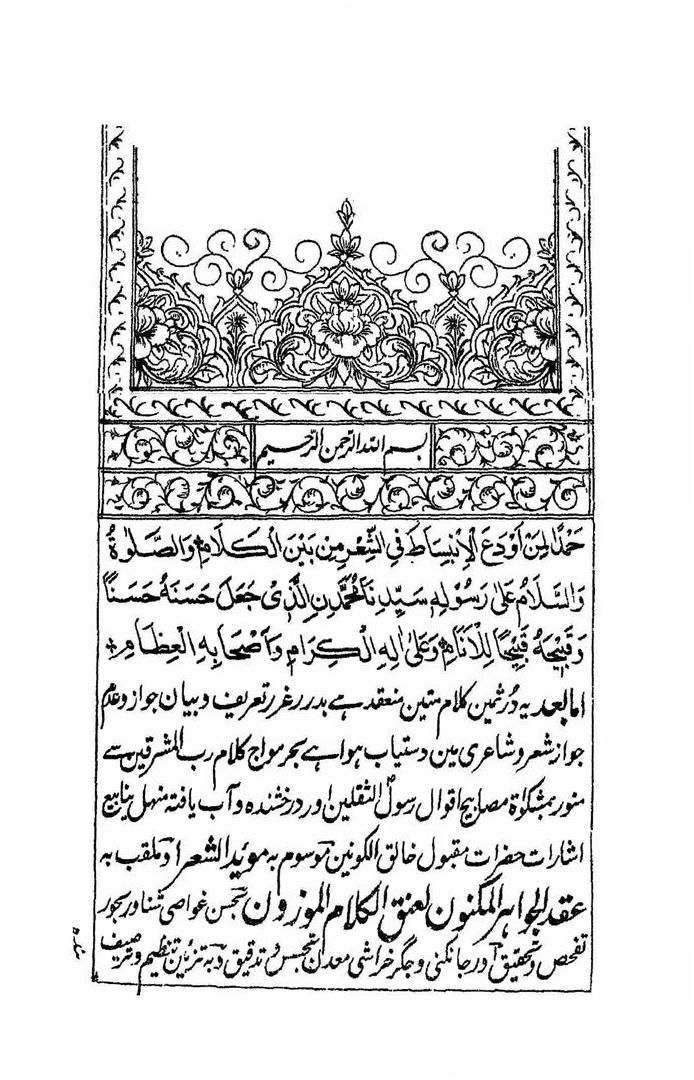 بسم الله الرحمن الرحيم
حَمْدًا لِمَنْ اَوْدَعَ الْاِنْبِسَاطَ فِى الشِّعْرِ مِنْ بَيْنِ الْكَلَامِ وَالصَّلٰوةُ
وَالسَّلَامُ عَلٰى رَسُوْلِهٖ سَيِّدِنَا مُحَمَّدِنِ الَّذِىْ جَعَلَ حَسَنَهٗ حَسَنًا
وَقَبِيْحَهٗ قَبِيْحًا لِلْاَنَامِ وَعَلٰى اٰلِهِ الْكِرَامِ وَاَصْحَابِهِ الْعِظَامِ *
اما بعد یہ دُر ثمین کلام متین منعقد ہے بدرر غرر تعریف و بیان جواز و عدم
جواز شعر و شاعری مین دستیاب ہوا ہے بحر مواج کلام رب المشرقین سے
منور بمشکوٰۃ مصابیح اقوال رسول الثقلین اور درخشندہ و آب یافتہ منہل ینابیع
اشارات حضرات مقبول خالق الکونین موسوم بہ مؤید الشعرا و ملقب بہ
عقد الجواہر المکنون لعنق الکلام الموزون غواصی شناور بحور
تفحص و تحقیق در جانکنی و جگر خراشی معدن تجسس و تدقیق بہ تزئین تنظیم و ترصیف